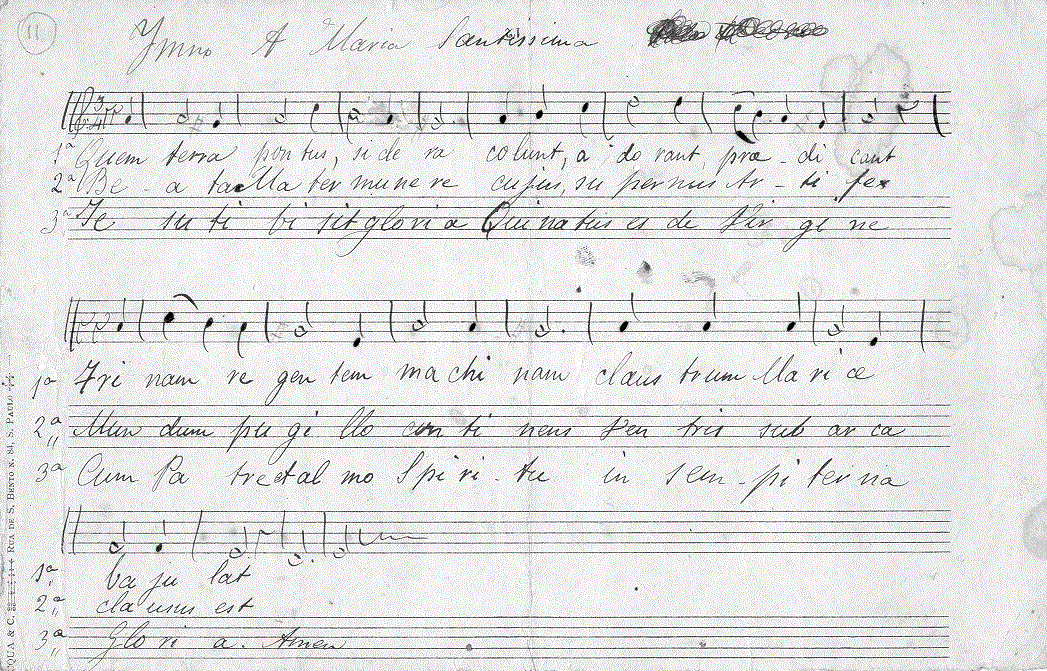 11
Ymno A Maria Santissima
3
4
1ª Quem terra pontus, si de ra colunt, a do rant, præ - di cant
2ª Be - a ta Ma ter mu ne re cujus, su pernus Ar - ti fex
3ª Je su ti bi sit gloria Qui natus es de Vir gi ne
1ª Tri nam re gen tem ma chi nam claus trum Ma ri æ
2ª Mun dum pu gi llo con ti nens Ven tris sub ar ca
3ª Cum Pa tre et al mo Spi ri - tu in sem - pi ter na
1ª ba ju lat
2ª cla usus est
3ª Glo ri a. Amen
QUA & C. RUA DE S. BENTO N. 81, S. PAULO